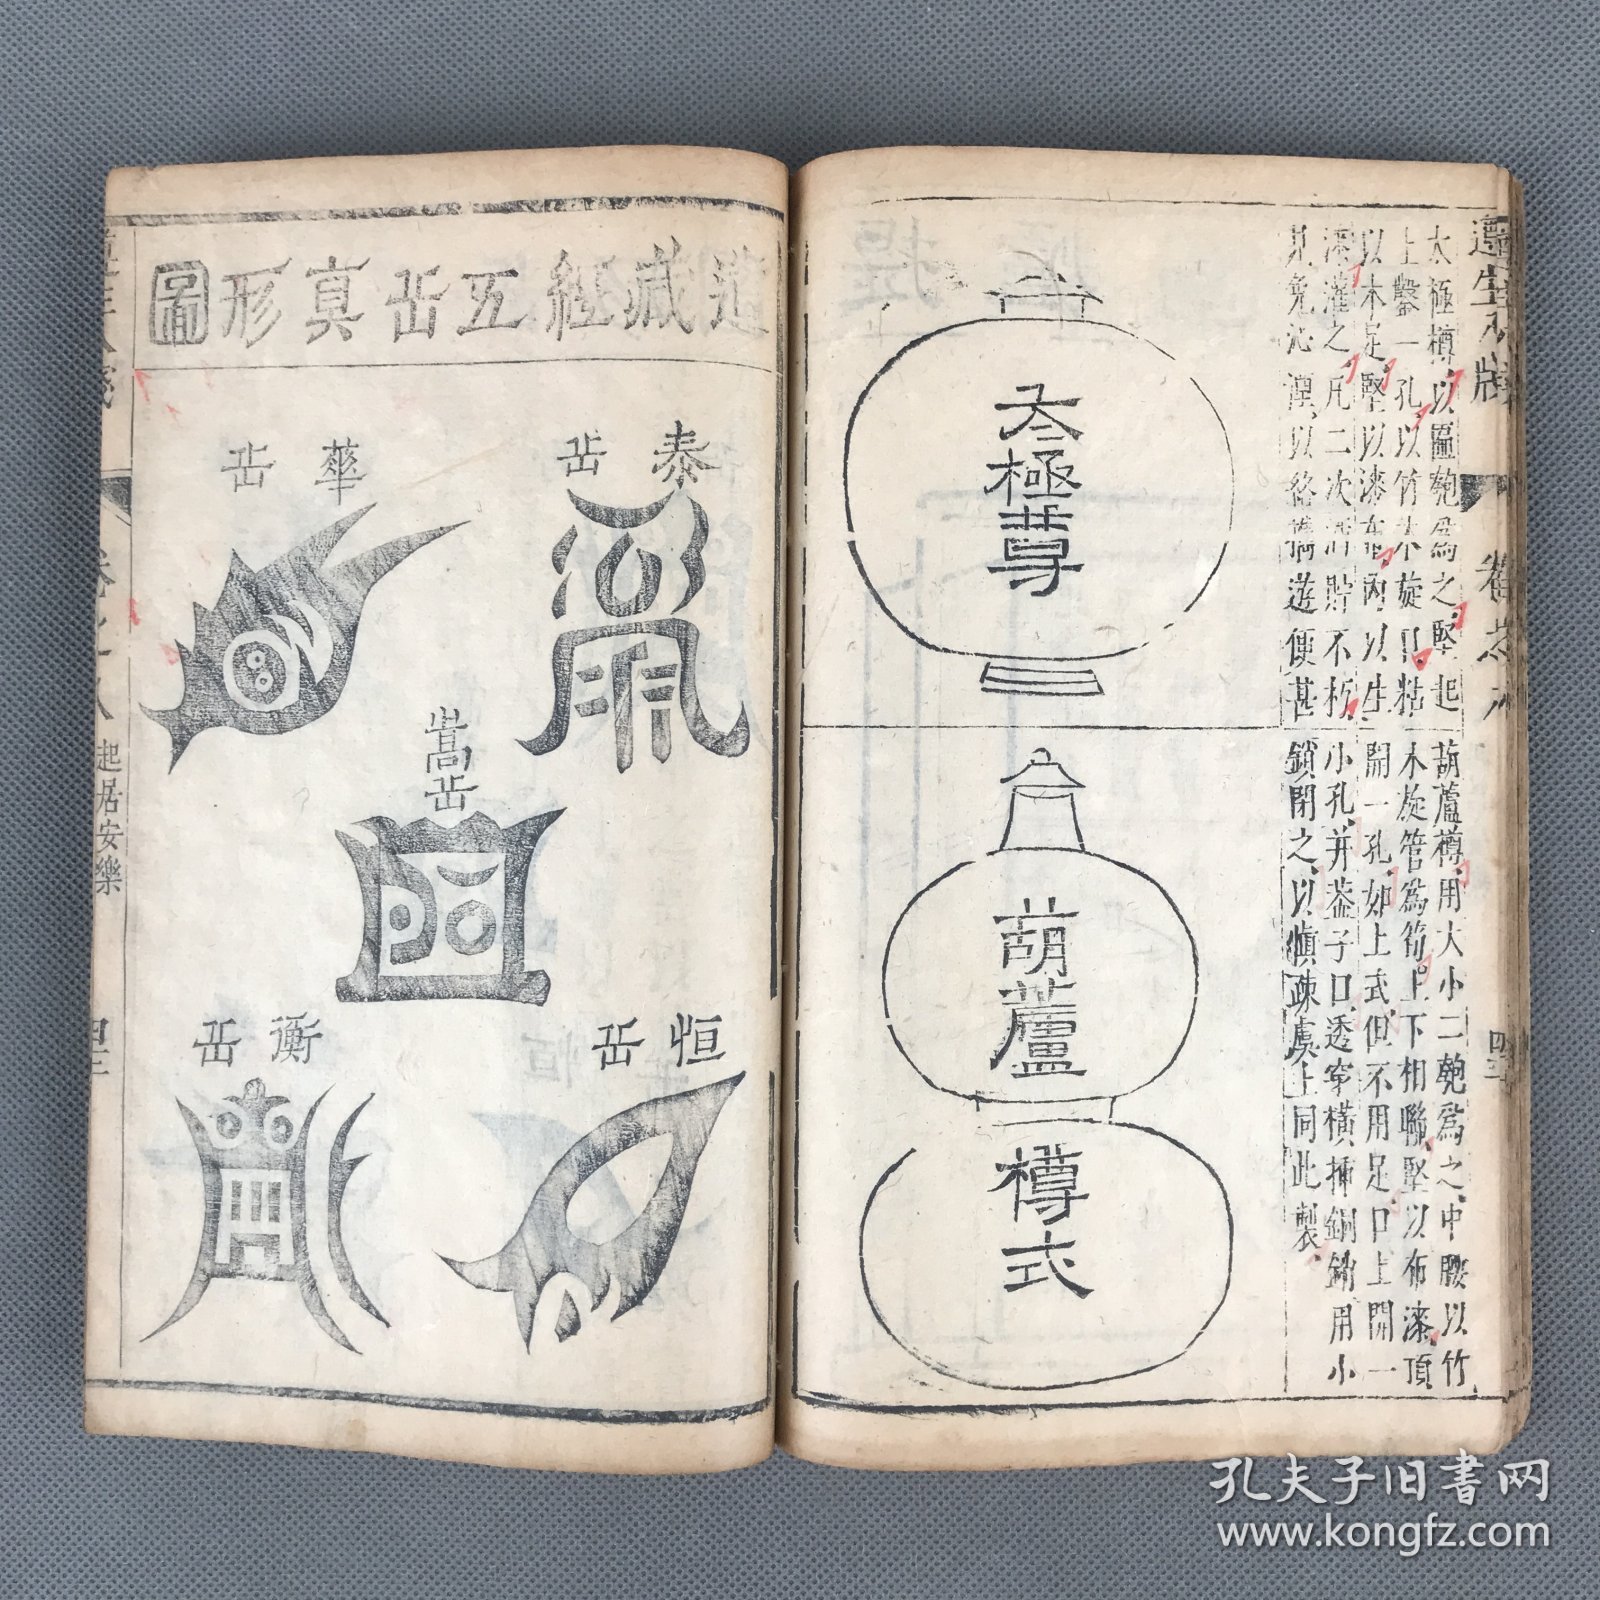 遵生八牋
卷之八
太極樽以匾匏爲之竪起
上鑿一孔以竹木旋口粘
以木足堅以漆布內以生
漆灌之凡二次酒貯不朽
且免沁湮以絡携遊便甚
葫蘆樽用大小二匏爲之中腰以竹
木旋管爲筍上下相聯堅以布漆頂
開一孔如上式但不用足口上開一
小孔并蓋子口透穿橫揷銅銷用小
鎖閉之以愼疎虞上同此製
太極尊
葫蘆樽式
道藏經五岳真形圖
泰岳
華岳
嵩岳
恒岳
衡岳
卷之八
起居安樂
孔夫子旧书网
www.kongfz.com